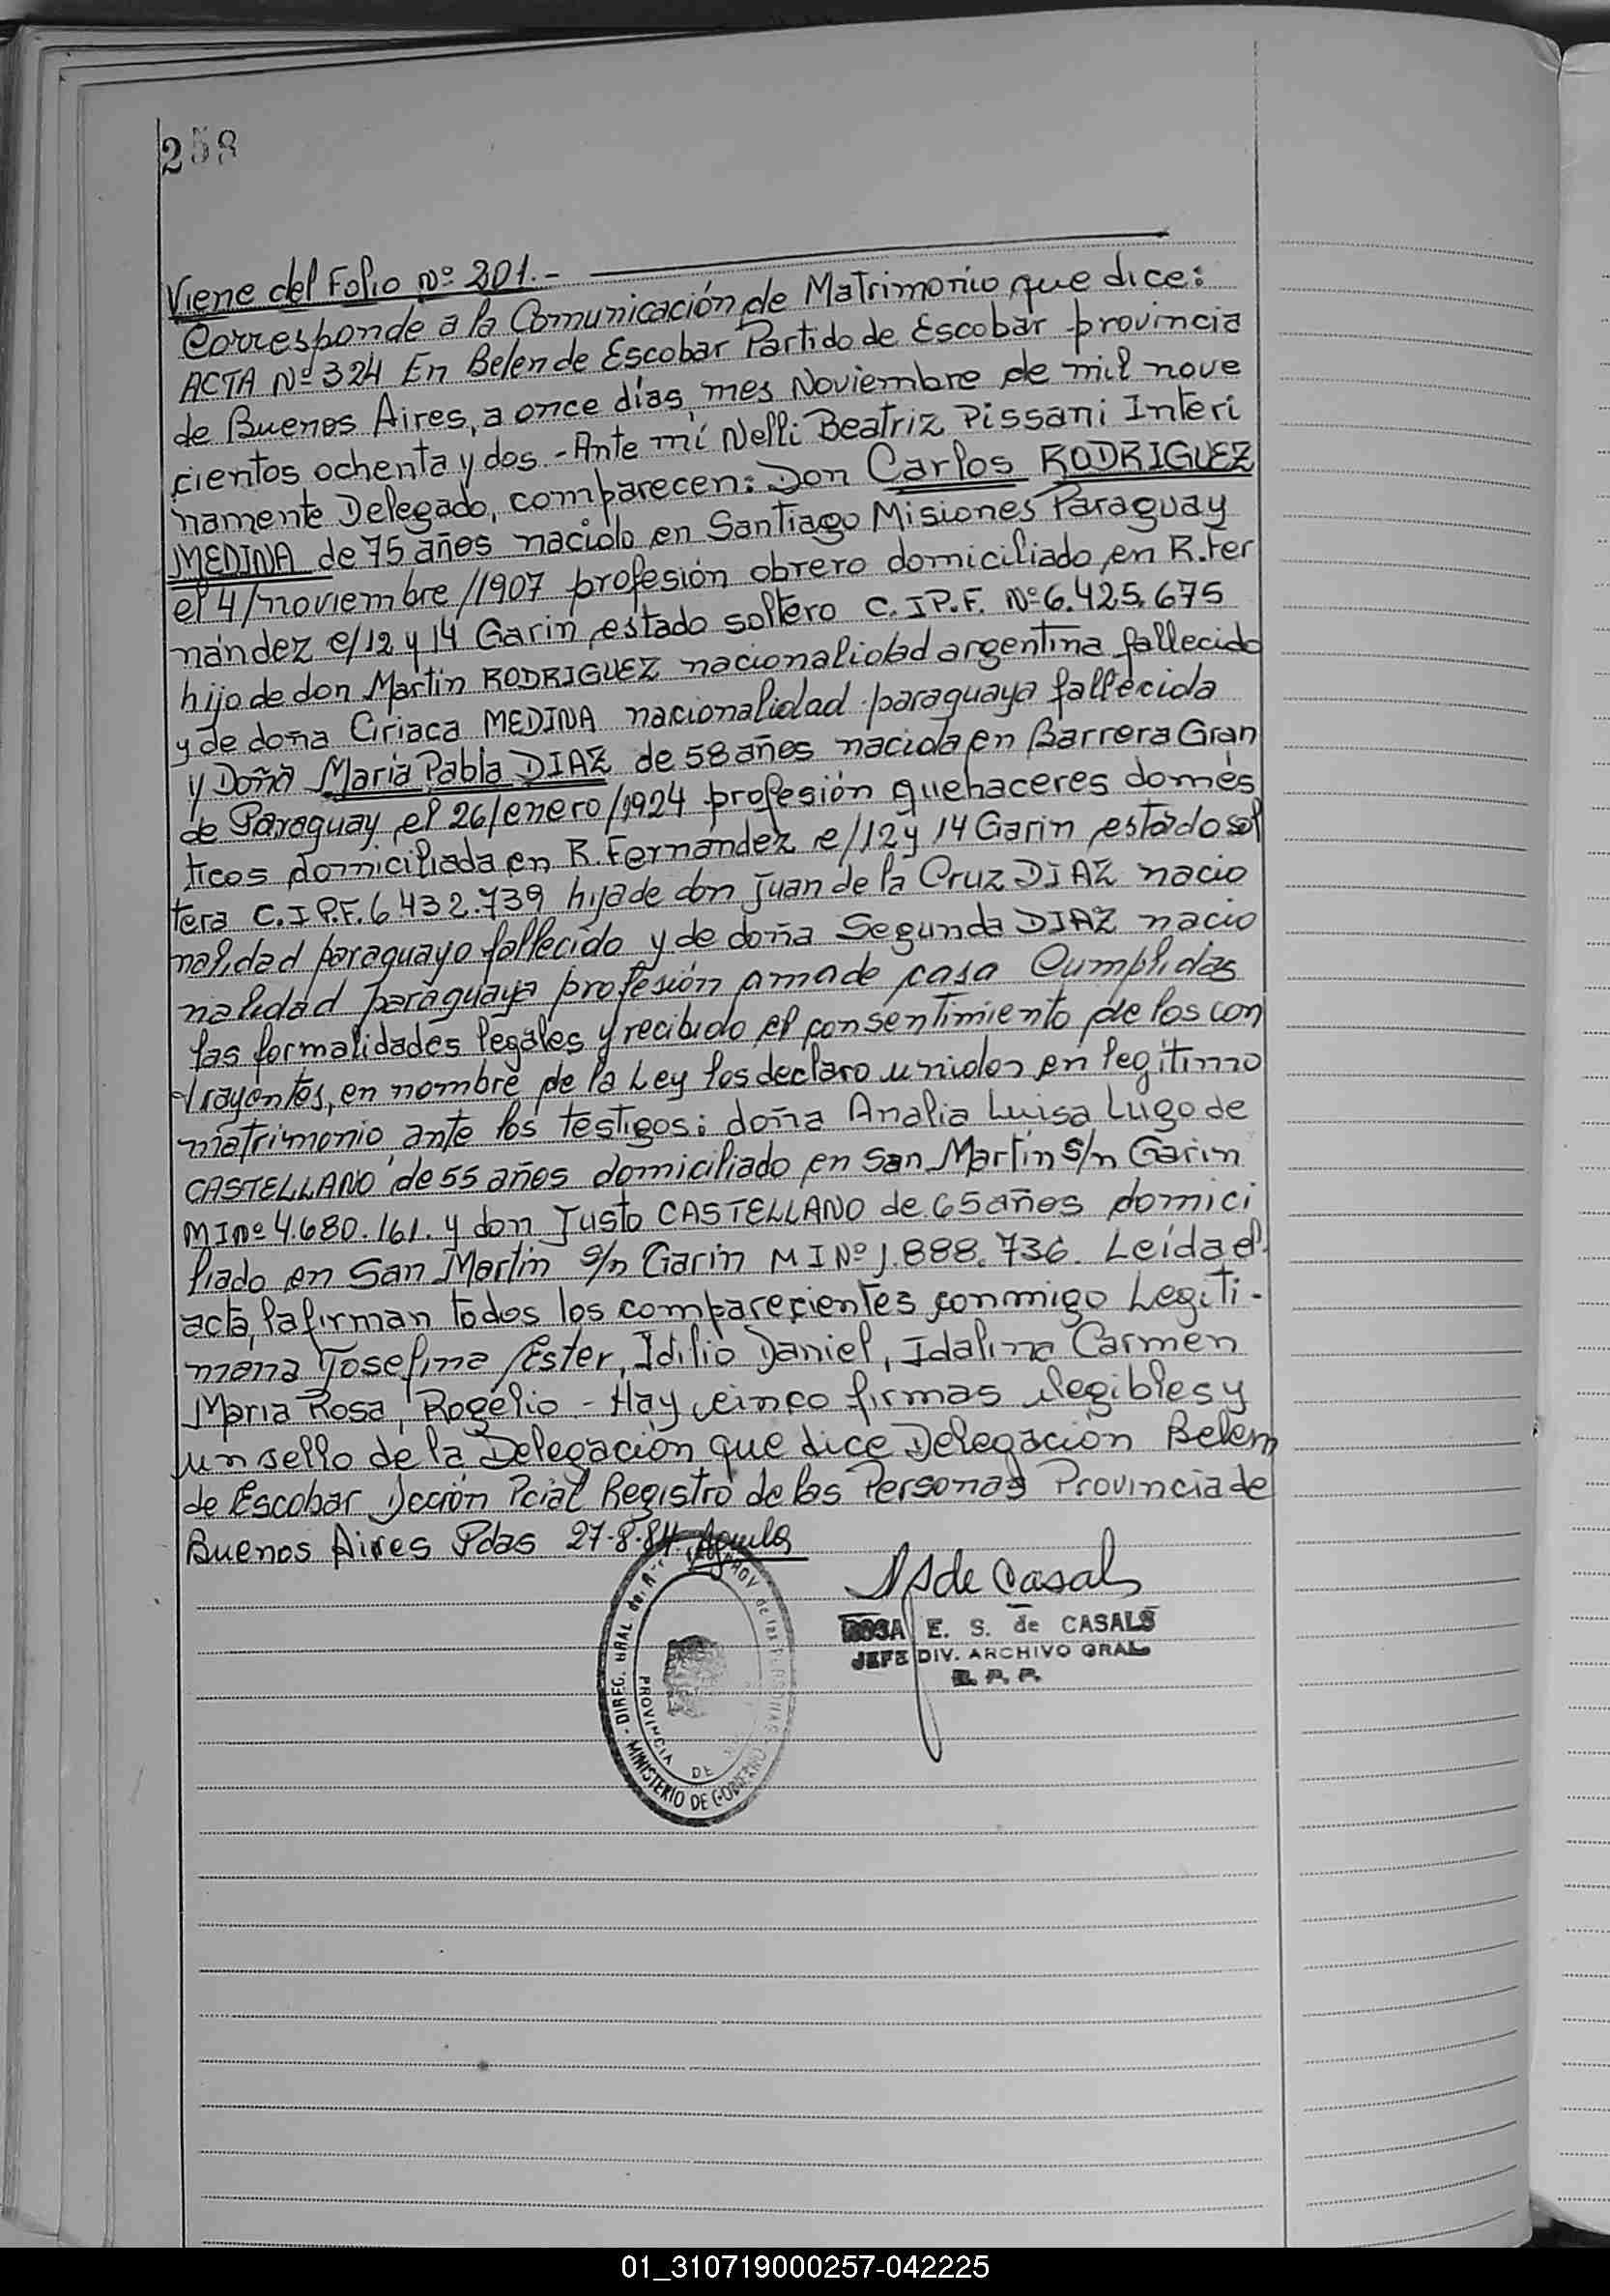 258
Viene del Folio Nº 201.-
Corresponde a la Comunicación de Matrimonio que dice:
ACTA Nº 324 En Belen de Escobar Partido de Escobar provincia
de Buenos Aires, a once días, mes Noviembre de mil nove
cientos ochenta y dos.- Ante mí Nelli Beatriz Pissani Interi
namente Delegado, comparecen: Don Carlos RODRIGUEZ
MEDINA de 75 años nacido en Santiago Misiones Paraguay
el 4/noviembre/1907 profesión obrero domiciliado en R. Fer
nández e/12 y 14 Garin estado soltero C.I P.F. Nº 6.425.675
hijo de don Martin RODRIGUEZ nacionalidad argentina fallecido
y de doña Ciriaca MEDINA nacionalidad paraguaya fallecida
y Doña Maria Pabla DIAZ de 58 años nacida en Barrera Gran
de Paraguay el 26/enero/1924 profesión quehaceres domés
ticos domiciliada en R. Fernández e/12 y 14 Garin estado sol
tera C.I P.F. 6 432.739 hija de don Juan de la Cruz DIAZ nacio
nalidad paraguayo fallecido y de doña Segunda DIAZ nacio
nalidad paraguaya profesión ama de casa Cumplidas
las formalidades legales y recibido el consentimiento de los con
trayentes, en nombre de la Ley los declaro unidos en legítimo
matrimonio ante los testigos: doña Analia Luisa Lugo de
CASTELLANO de 55 años domiciliado en San Martín s/n Garin
MI nº 4.680.161. y don Justo CASTELLANO de 65 años domici
liado en San Martín s/n Garin MI Nº 1.888.736. Leída el
acta, la firman todos los comparecientes conmigo Legiti-
mana Josefina Ester, Idilio Daniel, Idalina Carmen
María Rosa, Rogelio - Hay cinco firmas ilegibles y
un sello de la Delegación que dice Delegación Belem
de Escobar Dcción Pcial Registro de las Personas Provincia de
Buenos Aires Pdas 27-8-84
ROSA E. S. de CASALS
JEFE DIV. ARCHIVO GRAL
R. P. P.
DIREG. GRAL del
PROV de las PERSONAS
MINISTERIO DE GOBIERNO
PROVINCIA DE
01_310719000257-042225